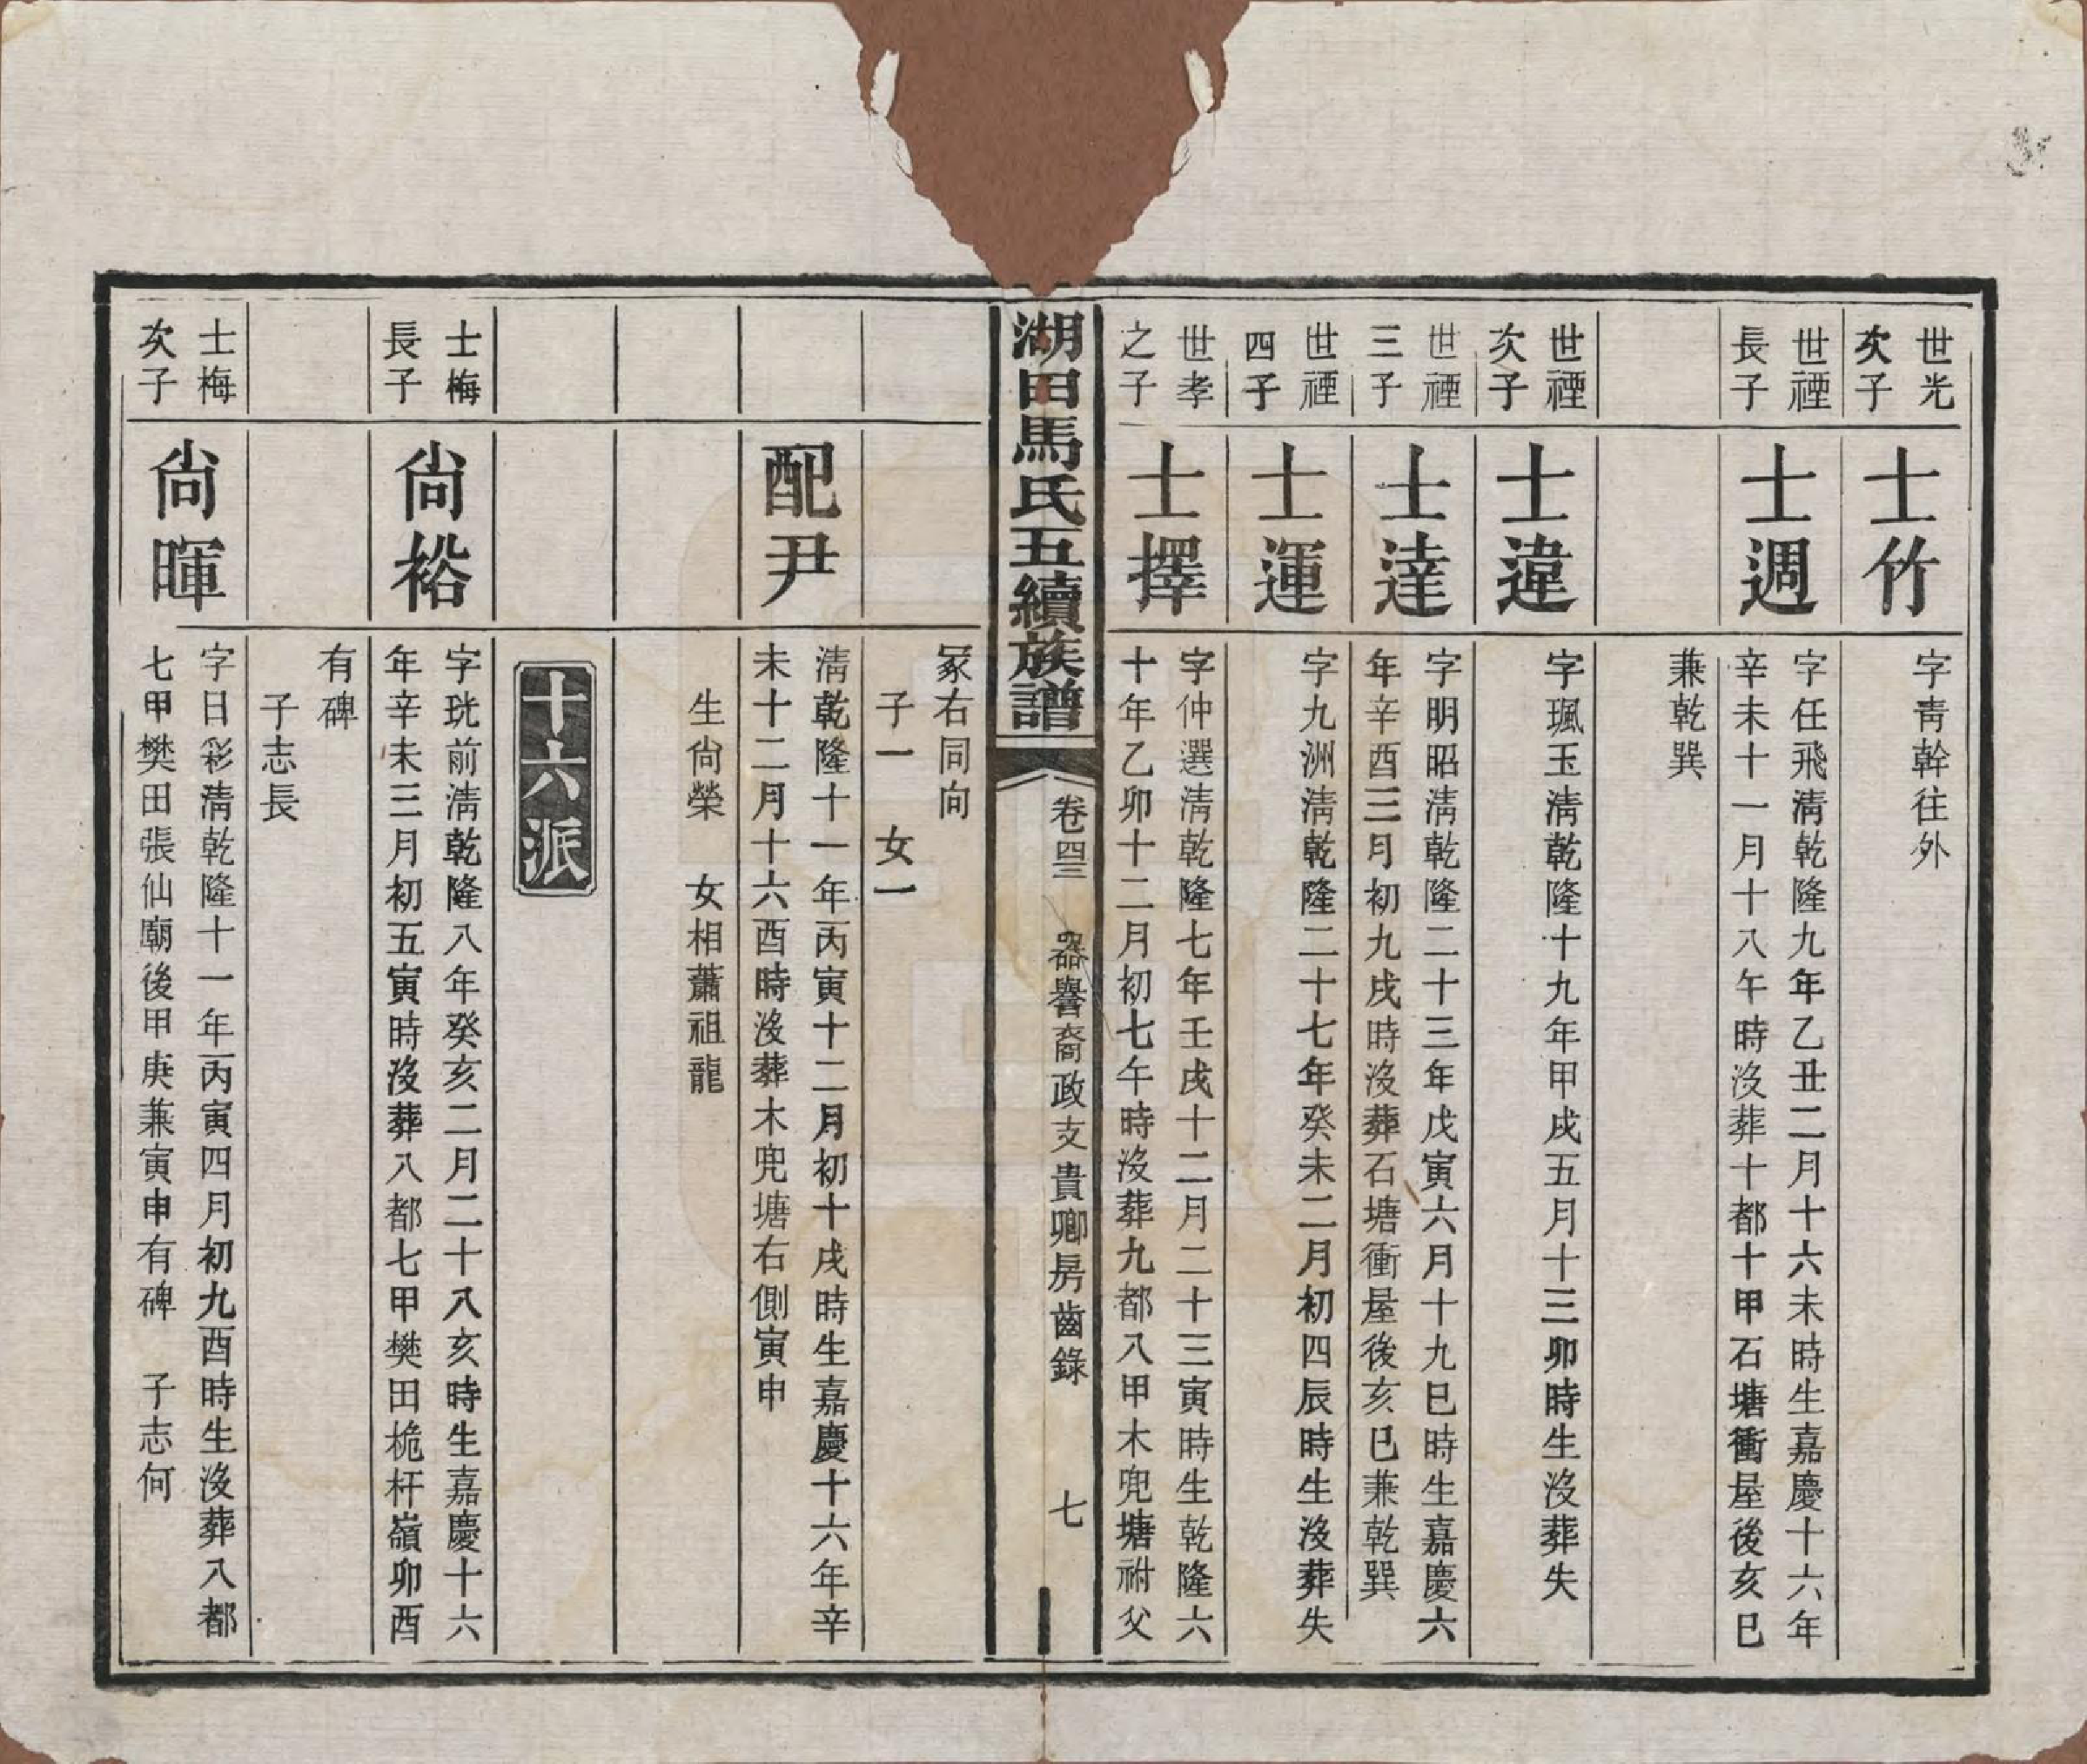 世光
次子
士竹
字靑幹往外
世禋
長子
士週
字任飛淸乾隆九年乙丑二月十六未時生嘉慶十六年
辛未十一月十八午時沒葬十都十甲石塘衝屋後亥巳
兼乾巽
世禋
次子
士違
字珮玉淸乾隆十九年甲戌五月十三卯時生沒葬失
世禋
三子
士達
字明昭淸乾隆二十三年戊寅六月十九巳時生嘉慶六
年辛酉三月初九戌時沒葬石塘衝屋後亥巳兼乾巽
世禋
四子
士運
字九洲淸乾隆二十七年癸未二月初四辰時生沒葬失
世孝
之子
士擇
字仲選淸乾隆七年壬戌十二月二十三寅時生乾隆六
十年乙卯十二月初七午時沒葬九都八甲木兜塘祔父
湖田馬氏五續族譜
卷四三 器譽裔政支貴卿房齒錄 七
冢右同向
子一 女一
配尹
淸乾隆十一年丙寅十二月初十戌時生嘉慶十六年辛
未十二月十六酉時沒葬木兜塘右側寅申
生尙榮 女相蕭祖龍
十六派
士梅
長子
尙裕
字珖前淸乾隆八年癸亥二月二十八亥時生嘉慶十六
年辛未三月初五寅時沒葬八都七甲樊田桅杆嶺卯酉
有碑
子志長
士梅
次子
尙暉
字日彩淸乾隆十一年丙寅四月初九酉時生沒葬八都
七甲樊田張仙廟後甲庚兼寅申有碑 子志何